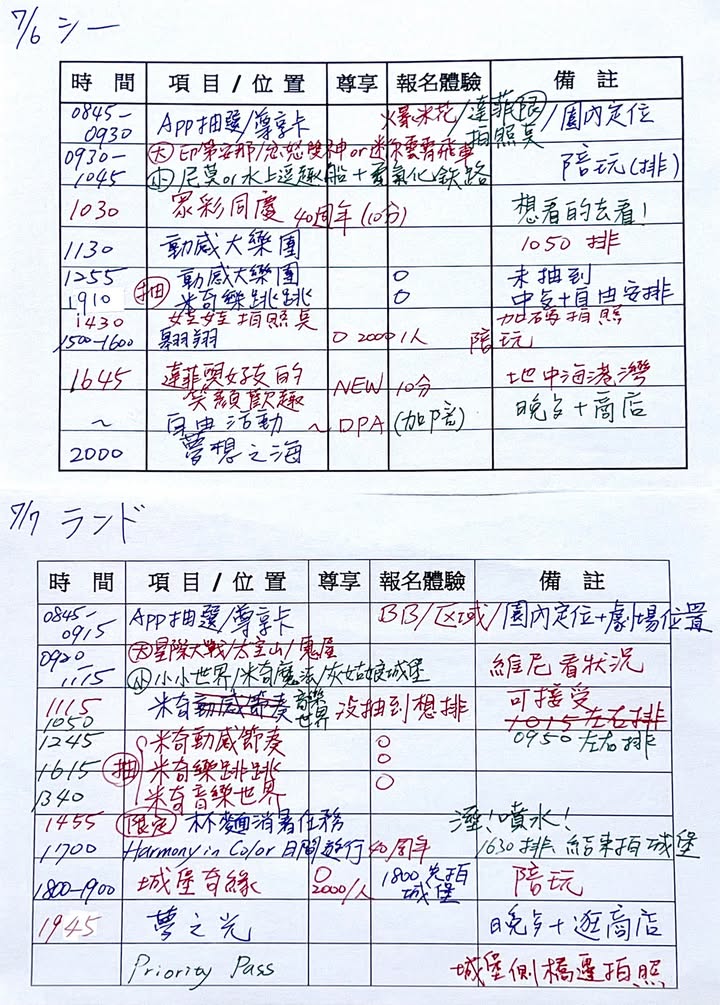 7/6 シー
時 間 項目 / 位置 尊享 報名體驗 備 註
0845-0930 App抽選/尊享卡 爆米花/達菲限拍照奠/園內定位
0930-1045 大 印第安那/忿怒雙神 or 迷你雲霄飛車
小 尼莫or水上逗趣船+電氣化鉄路 陪玩(排)
1030 眾彩同慶 40周年(10分) 想看的去看!
1130 動感大樂團 1050 排
1255 抽 動感大樂團 ○ 未抽到
1910 米奇樂跳跳 ○ 中多+自由安排
1430 娃娃拍照奠 加碼拍照
1500-1600 翱翔 ○ 2000/人 陪玩
1645 達菲與好友的笑顏歡趣 NEW 10分 地中海港灣
~ 自由活動 ~ DPA (加陪) 晚多+商店
2000 夢想之海
7/7 ランド
時 間 項目 / 位置 尊享 報名體驗 備 註
0845-0915 App抽選/尊享卡 BB/区域/園內定位+劇場位置
0920-1115 大 星際大戰/太空山/鬼屋
小 小小世界/米奇魔法/灰姑娘城堡 維尼看狀況
1115 1050 米奇動感節奏 音樂世界 沒抽到想排 可接受 1015左右排
1245 米奇動感節奏 ○ 0950左右排
1615 抽 米奇樂跳跳 ○
1340 米奇音樂世界 ○
1455 限定 杯麵消暑任務 溼!噴水!
1700 Harmony in Color 日間遊行 40周年 1630排、結束拍城堡
1800-1900 城堡奇緣 ○ 2000/人 1800先拍城堡 陪玩
1945 夢之光 晚多+逛商店
Priority Pass 城堡側橋邊拍照